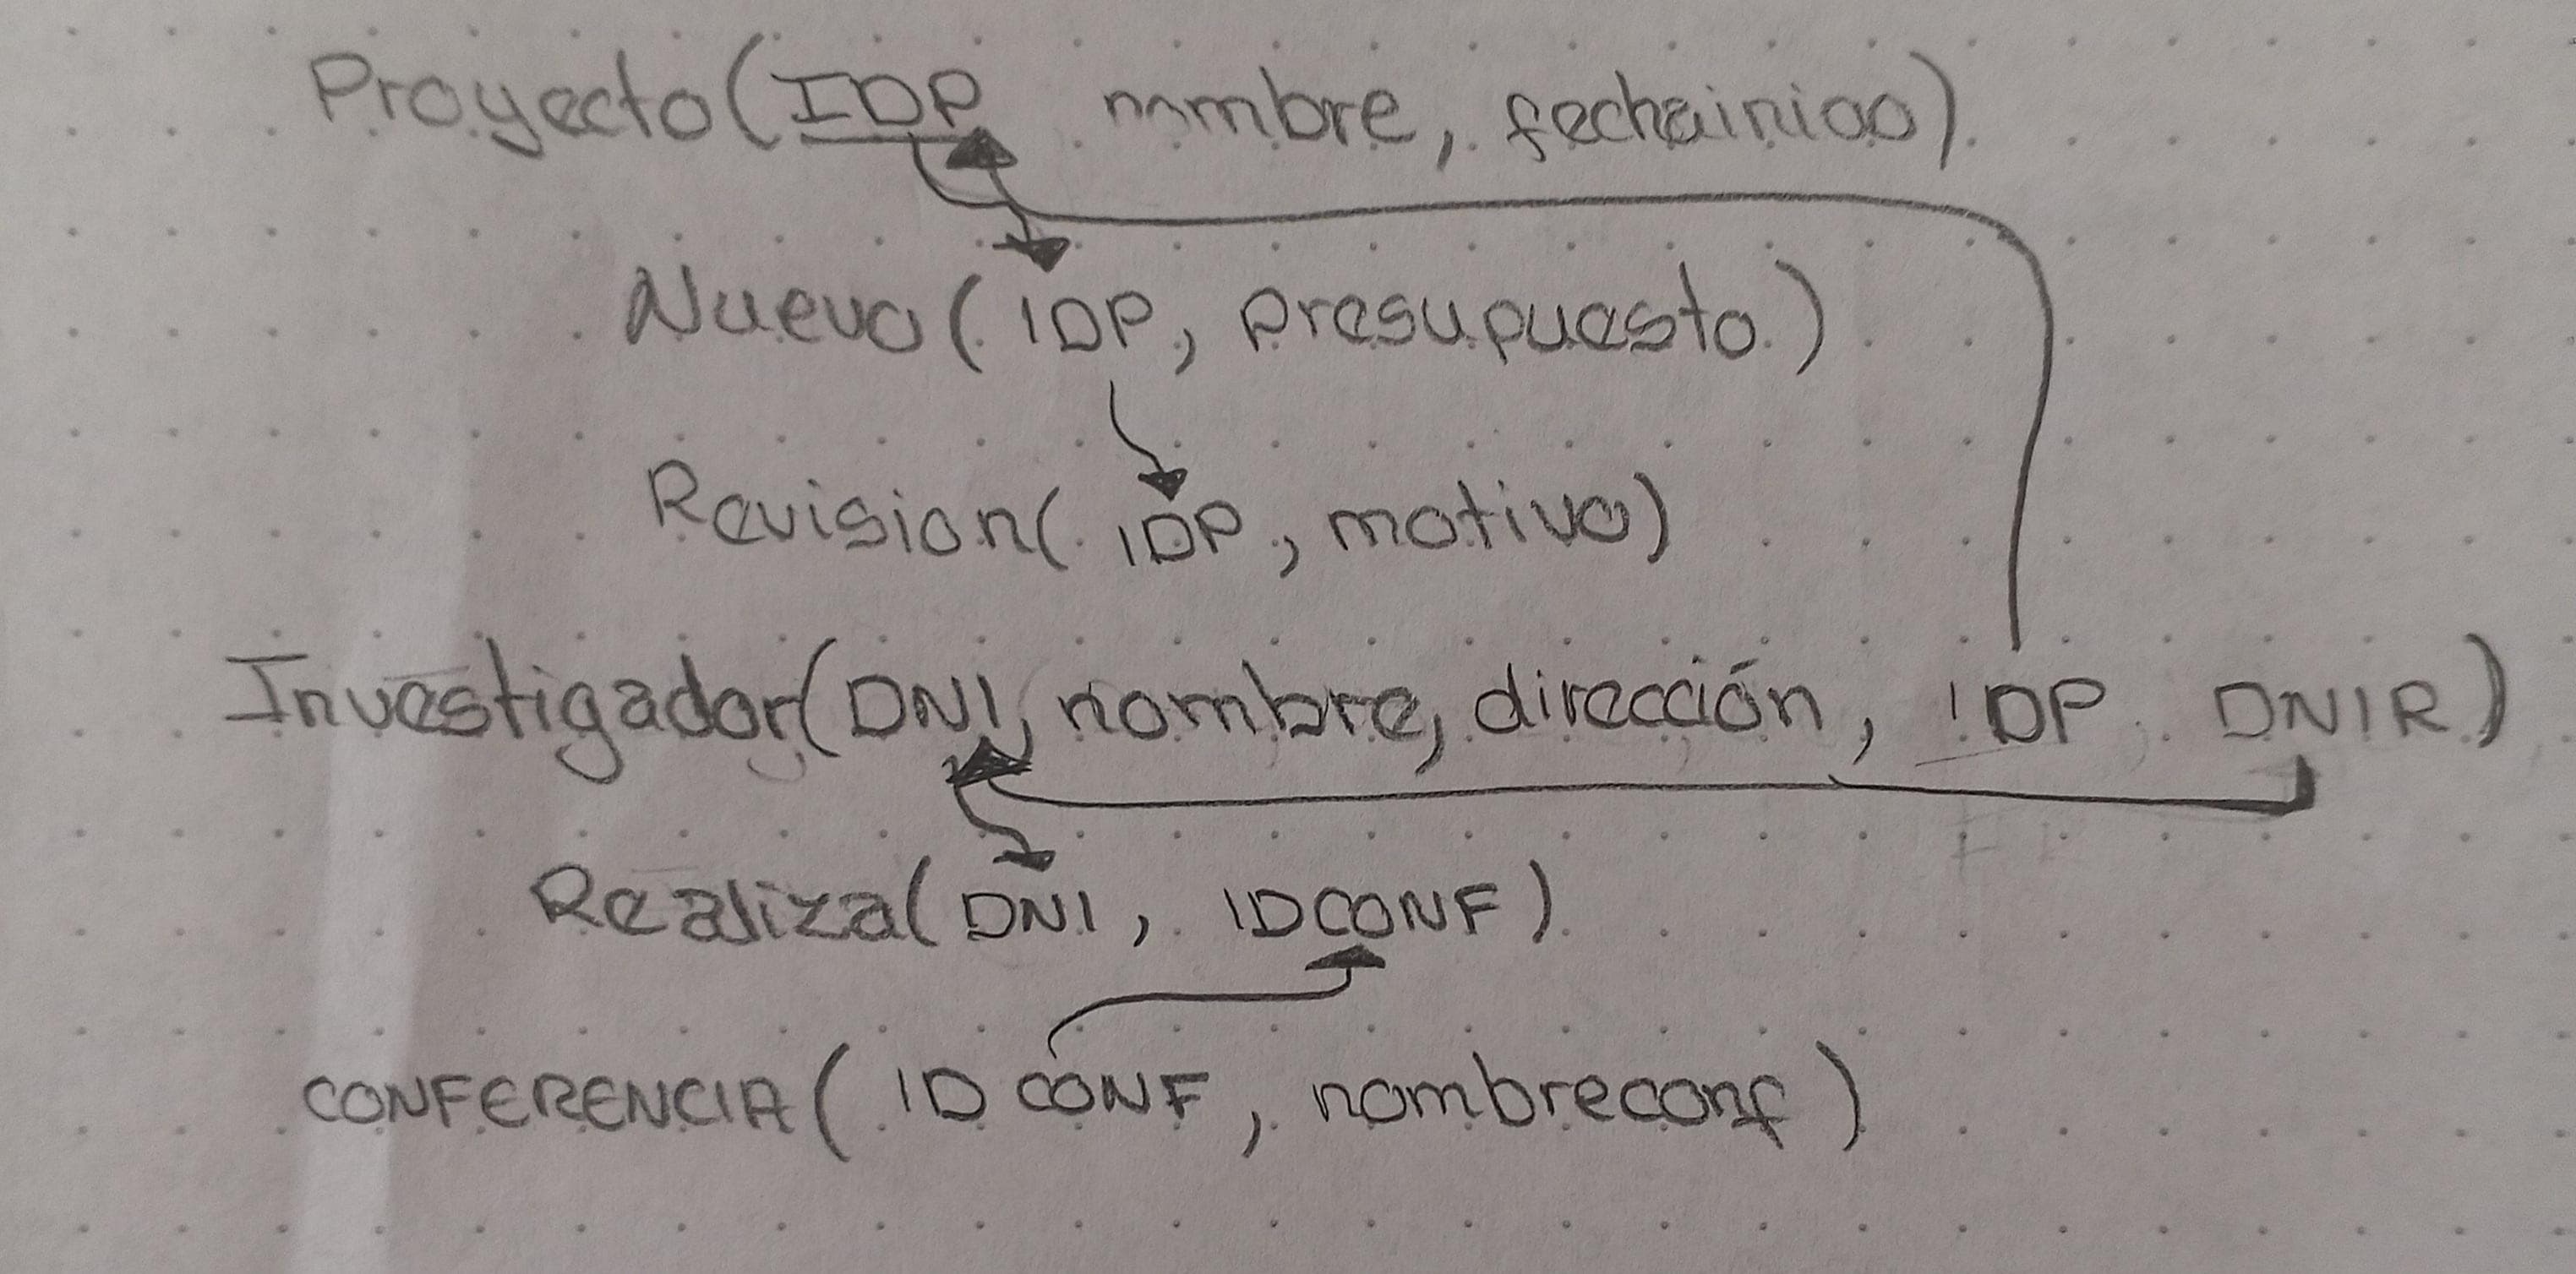 Proyecto(IDP nombre, fechainicio)
Nuevo(IDP, presupuesto)
Revision(IDP, motivo)
Investigador(DNI, nombre, dirección, IDP DNIR)
Realiza(DNI, IDCONF)
CONFERENCIA(IDCONF, nombreconf)